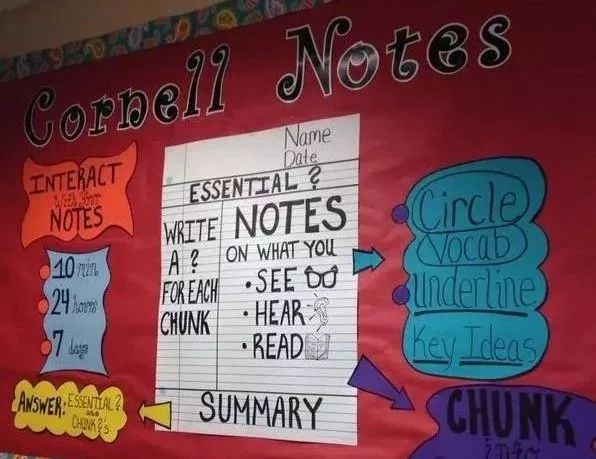 Cornell Notes
INTERACT
with your
NOTES
10 min
24 hours
7 days
ANSWER: ESSENTIAL ?
and
CHUNK ?s
Name
Date
ESSENTIAL ?
WRITE
A ?
FOR EACH
CHUNK
NOTES
ON WHAT YOU
• SEE
• HEAR
• READ
SUMMARY
Circle
Vocab
Underline
Key Ideas
CHUNK
into